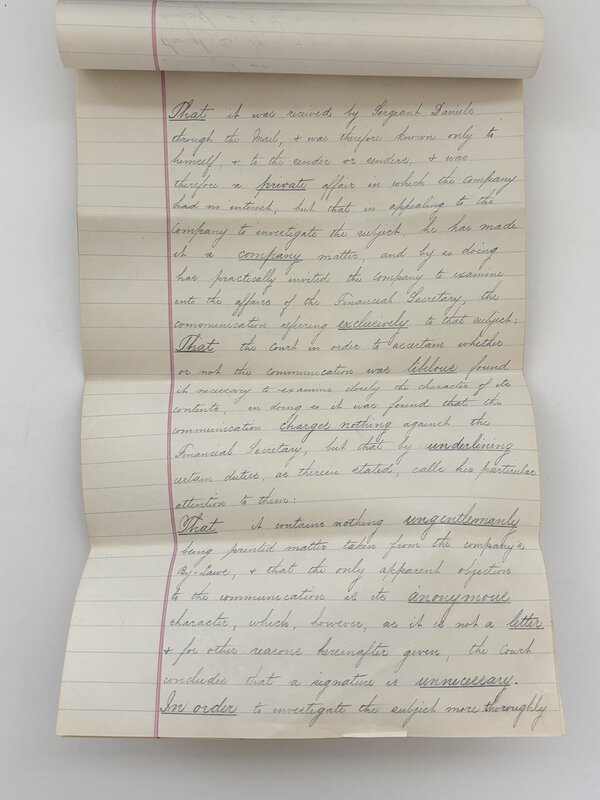 That it was recived by Sergeant Daniels
through the Mail, & was therefore known only to
himself, & to the sender or senders, & was
therefore a private affair in which the company
had no interest, but that in appealing to the
Company to investigate the subject, he has made
it a company matter, and by so doing
has practically invited the company to examine
into the affairs of the Financial Secretary, the
communication referring exclusively to that subject;
That the court in order to ascertain whether
or not the communication was liblous found
it necessary to examine closely the character of its
contents, in doing so it was found that the
communication charged nothing against the
Financial Secretary, but that by underlining
certain duties, as therein stated, calls his particular
attention to them:
That it contains nothing ungentlemanly
being printed matter taken from the company's
By-Laws, & that the only apparent objection
to the communication is its anonymous
character, which, however, as it is not a letter
& for other reasons hereinafter given, the Court
concludes that a signature is unnecessary.
In order to investigate the subject more thoroughly